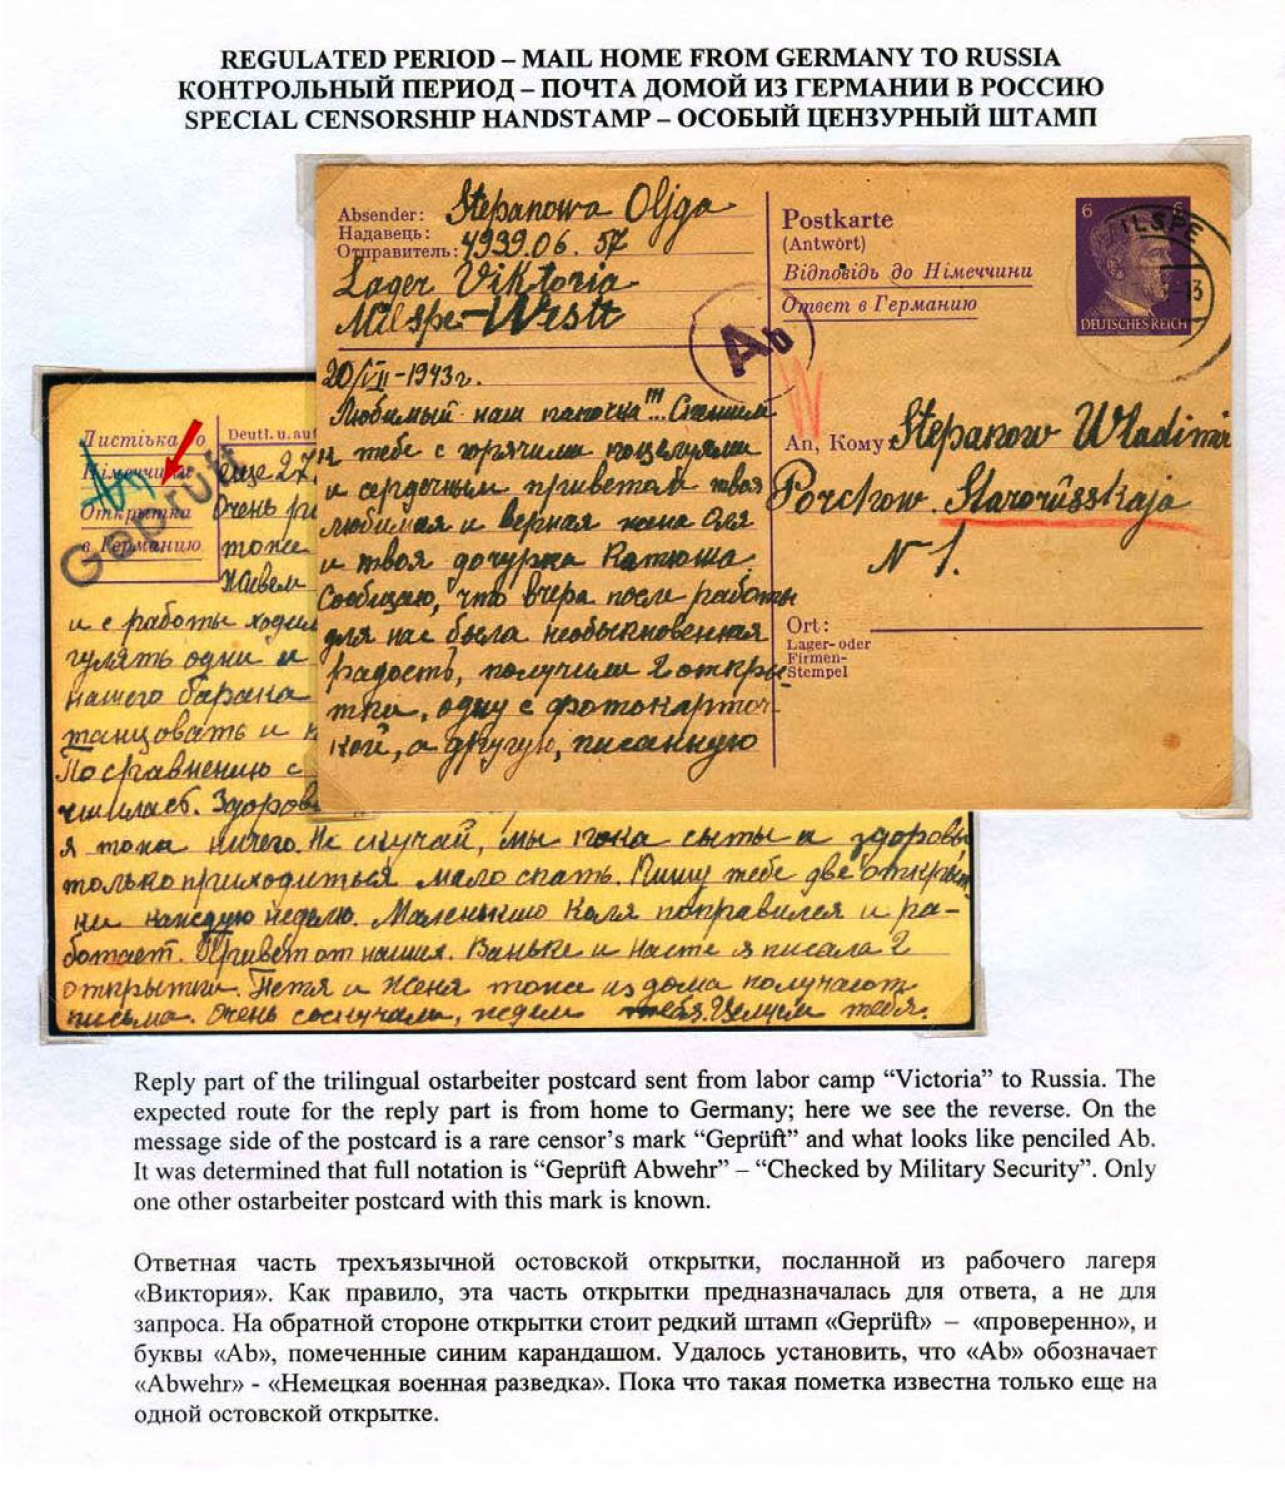 REGULATED PERIOD – MAIL HOME FROM GERMANY TO RUSSIA
КОНТРОЛЬНЫЙ ПЕРИОД – ПОЧТА ДОМОЙ ИЗ ГЕРМАНИИ В РОССИЮ
SPECIAL CENSORSHIP HANDSTAMP – ОСОБЫЙ ЦЕНЗУРНЫЙ ШТАМП
Absender: Stepanowa Oljga
Надавець:
Отправитель: 4939.06. 57
Lager Viktoria
Milspe-Westt
20/VII-1943г.
Любимый наш папочка!!! Спешим
к тебе с горячими поцелуями
и сердечным приветом твоя
любимая и верная жена Оля
и твоя дочурка Катюша.
Сообщаю, что вчера после работы
для нас была необыкновенная
радость, получили 2 откры-
тки, одну с фотокарточ-
кой, а другую, писанную
Postkarte
(Antwort)
Відповідь до Німеччини
Ответ в Германию
6 6
DEUTSCHES REICH
ILSPE
Ab
An, Кому: Stepanow Wladimir
Porchow. Starorüsskaja
N 1.
Ort:
Lager- oder
Firmen-
Stempel
Листівка до
Німеччини
Открытка
в Германию
Geprüft
Deutl. u. auf
еще 27
Очень
тоже
Живем
и с работы ходим
гулять одни и
нашего барака
танцовать и
По сравнению с
чшилась. Здоров
я тоже ничего. Не скучай, мы пока сыты и здоровы
только приходиться мало спать. Пишу тебе две открыт
ки каждую неделю. Маленькию Коля поправился и ра-
ботает. Привет от наших. Ваньке и Насте я писала 2
открытки. Петя и Женя тоже из дома получают
письма. Очень соскучали, ждем тебя. Целуем тебя.
Reply part of the trilingual ostarbeiter postcard sent from labor camp “Victoria” to Russia. The
expected route for the reply part is from home to Germany; here we see the reverse. On the
message side of the postcard is a rare censor’s mark “Geprüft” and what looks like penciled Ab.
It was determined that full notation is “Geprüft Abwehr” – “Checked by Military Security”. Only
one other ostarbeiter postcard with this mark is known.
Ответная часть трехъязычной остовской открытки, посланной из рабочего лагеря
«Виктория». Как правило, эта часть открытки предназначалась для ответа, а не для
запроса. На обратной стороне открытки стоит редкий штамп «Geprüft» – «проверенно», и
буквы «Ab», помеченные синим карандашом. Удалось установить, что «Ab» обозначает
«Abwehr» - «Немецкая военная разведка». Пока что такая пометка известна только еще на
одной остовской открытке.